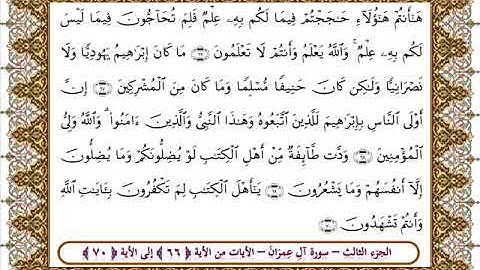 هَٰٓأَنتُمْ هَٰٓؤُلَآءِ حَٰجَجْتُمْ فِيمَا لَكُم بِهِۦ عِلْمٌ فَلِمَ تُحَآجُّونَ فِيمَا لَيْسَ
لَكُم بِهِۦ عِلْمٌ ۚ وَٱللَّهُ يَعْلَمُ وَأَنتُمْ لَا تَعْلَمُونَ ﴿٦٦﴾ مَا كَانَ إِبْرَٰهِيمُ يَهُودِيًّا وَلَا
نَصْرَانِيًّا وَلَٰكِن كَانَ حَنِيفًا مُّسْلِمًا وَمَا كَانَ مِنَ ٱلْمُشْرِكِينَ ﴿٦٧﴾ إِنَّ
أَوْلَى ٱلنَّاسِ بِإِبْرَٰهِيمَ لَلَّذِينَ ٱتَّبَعُوهُ وَهَٰذَا ٱلنَّبِىُّ وَٱلَّذِينَ ءَامَنُوا۟ ۗ وَٱللَّهُ وَلِىُّ
ٱلْمُؤْمِنِينَ ﴿٦٨﴾ وَدَّت طَّآئِفَةٌ مِّنْ أَهْلِ ٱلْكِتَٰبِ لَوْ يُضِلُّونَكُمْ وَمَا يُضِلُّونَ
إِلَّآ أَنفُسَهُمْ وَمَا يَشْعُرُونَ ﴿٦٩﴾ يَٰٓأَهْلَ ٱلْكِتَٰبِ لِمَ تَكْفُرُونَ بِـَٔايَٰتِ ٱللَّهِ
وَأَنتُمْ تَشْهَدُونَ ﴿٧٠﴾
الجزء الثالث – سورة آلِ عِمرَان – الآيات من الأية ﴿٦٦﴾ إلى الأية ﴿٧٠﴾